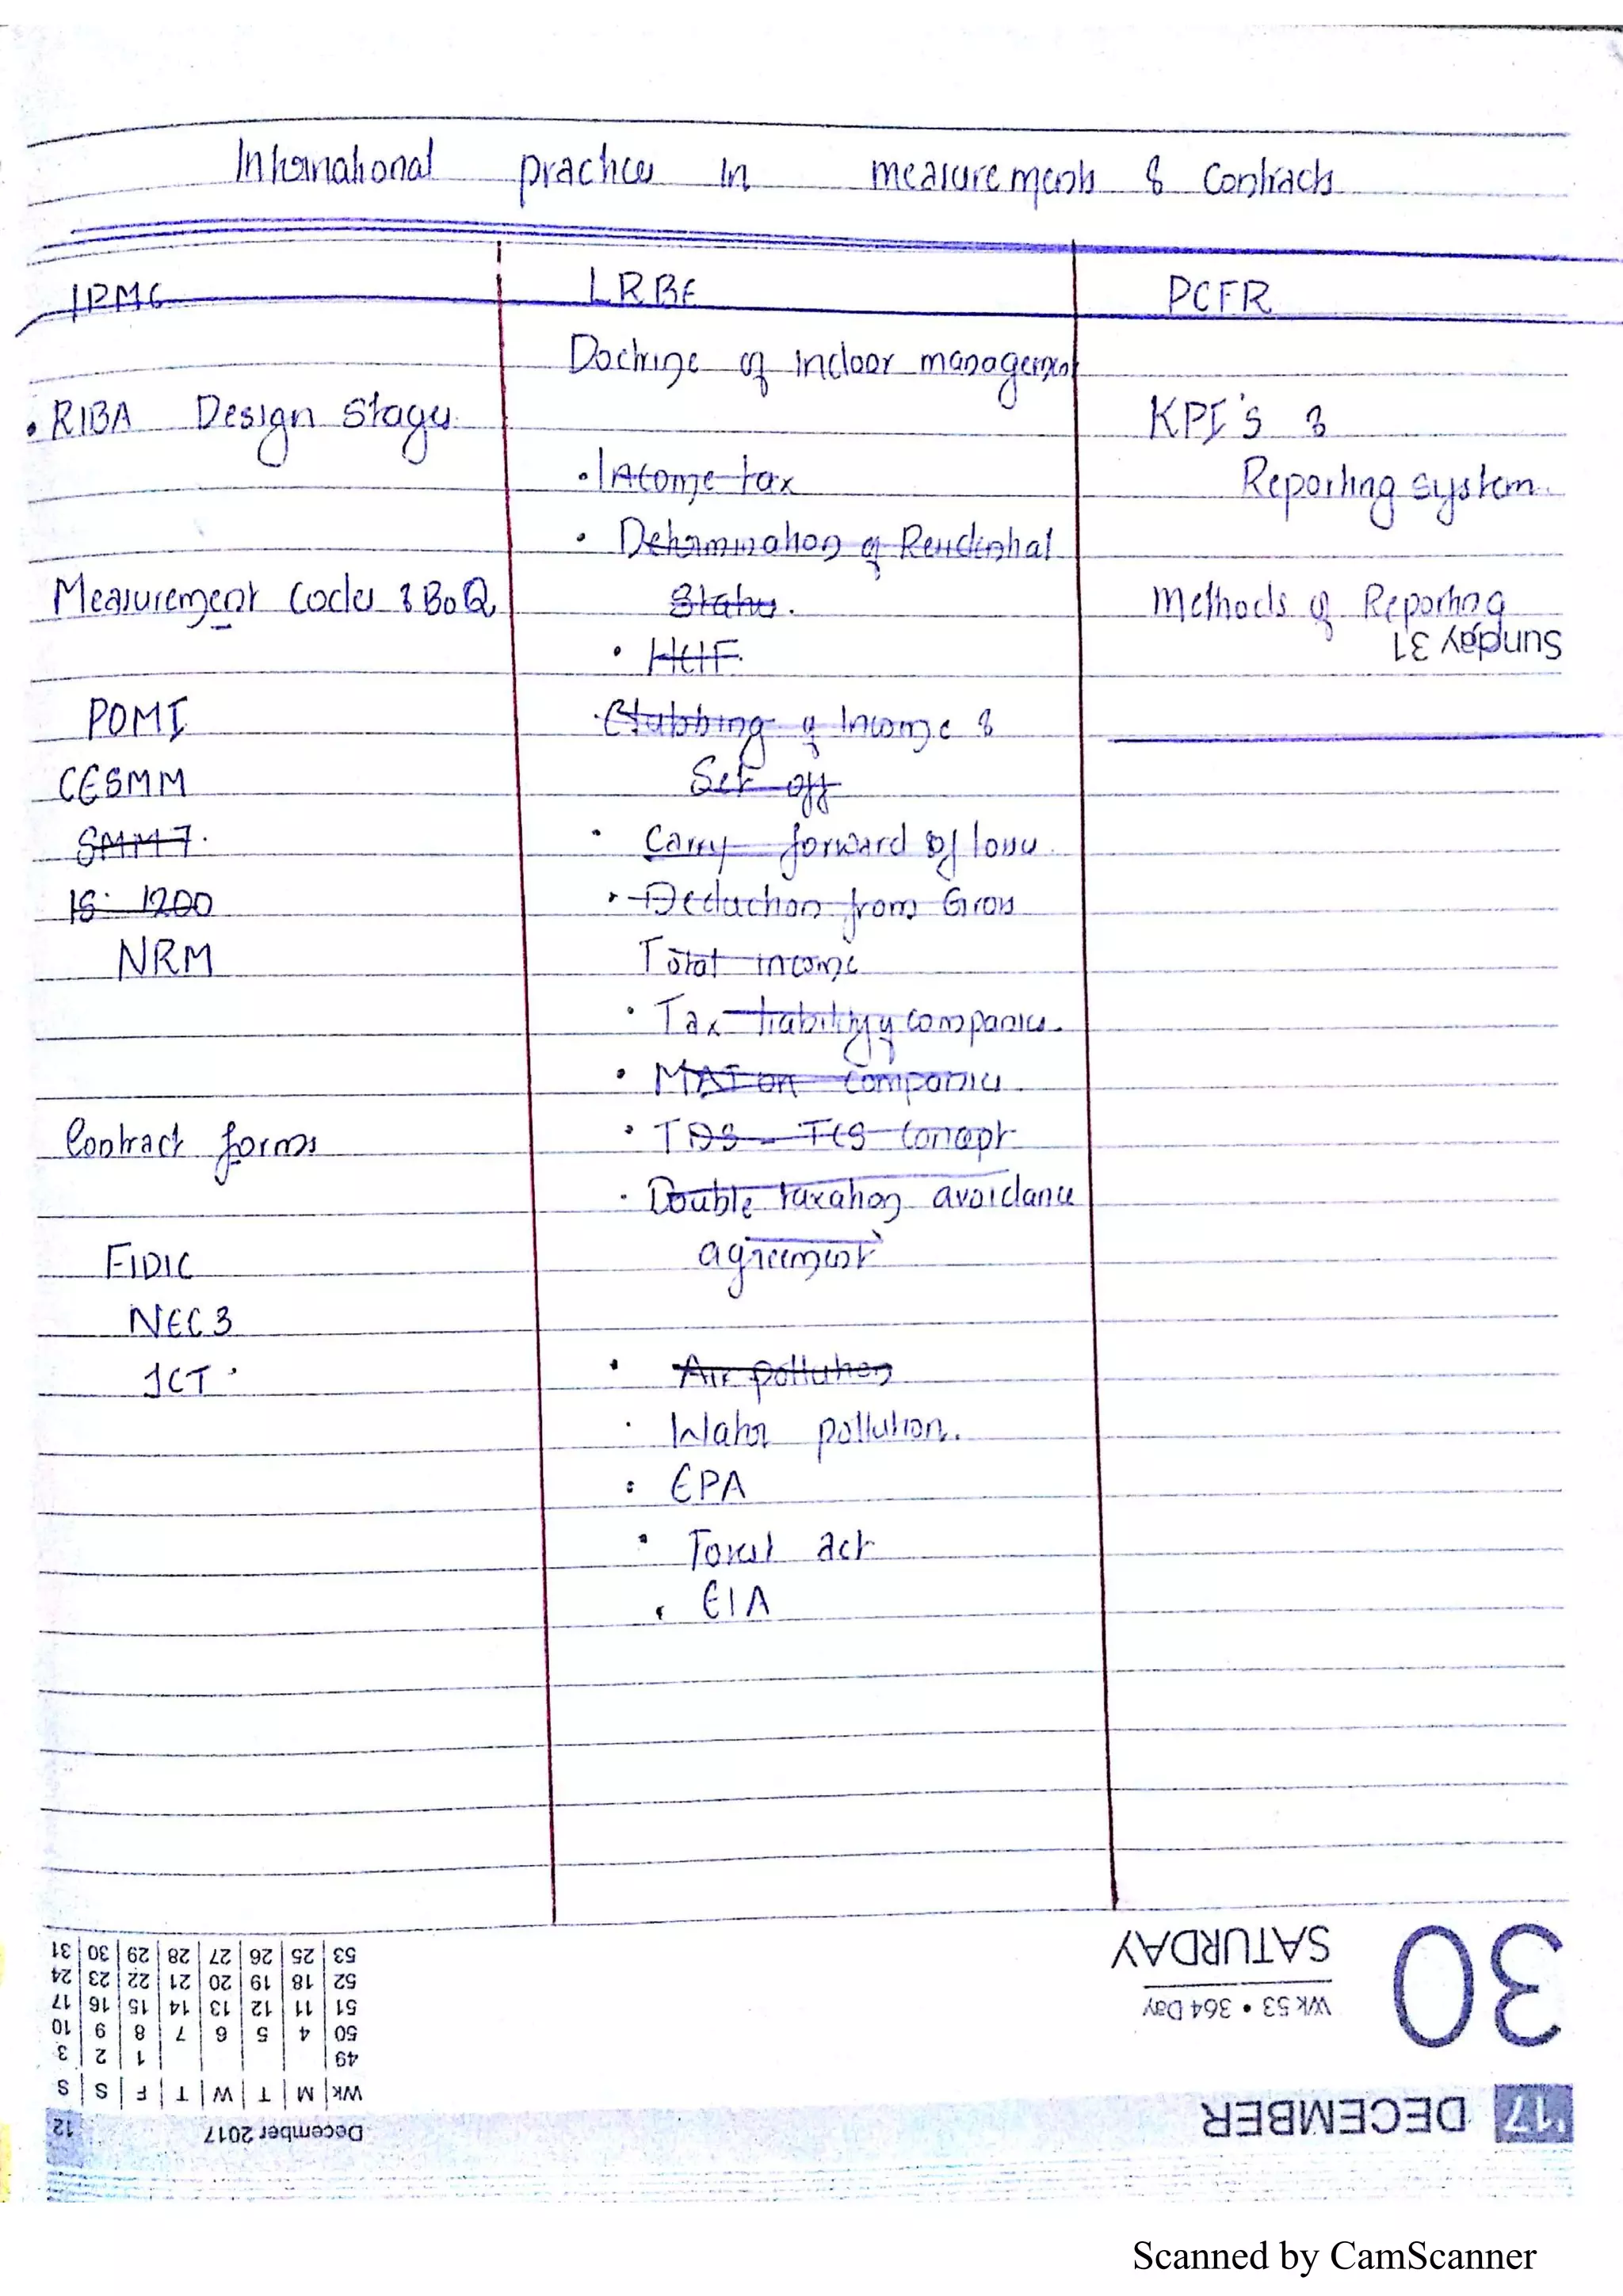 International practices in measurements & Contracts
IPMC
RIBA Design Stages
Measurement Codes & BoQ
POMI
CESMM
SMM7.
IS: 1200
NRM
Contract forms
FIDIC
NEC3
JCT
LRBE
Doctrine of indoor management
• Income tax
• Determination of Residential
Status.
• HUF.
• Clubbing of Income &
Set off
• Carry forward of losses
• Deduction from Gross
Total income
• Tax liability of companies.
• MAT on companies.
• TDS - TCS concept
• Double taxation avoidance
agreement
• Air pollution
• Water pollution.
• EPA
• Forest act
• EIA
PCFR
KPI's &
Reporting system.
Methods of Reporting
Sunday 31
'17 DECEMBER
30
Wk 53 • 364 Day
SATURDAY
December 2017 12
Wk M T W T F S S
49 1 2 3
50 4 5 6 7 8 9 10
51 11 12 13 14 15 16 17
52 18 19 20 21 22 23 24
53 25 26 27 28 29 30 31
Scanned by CamScanner